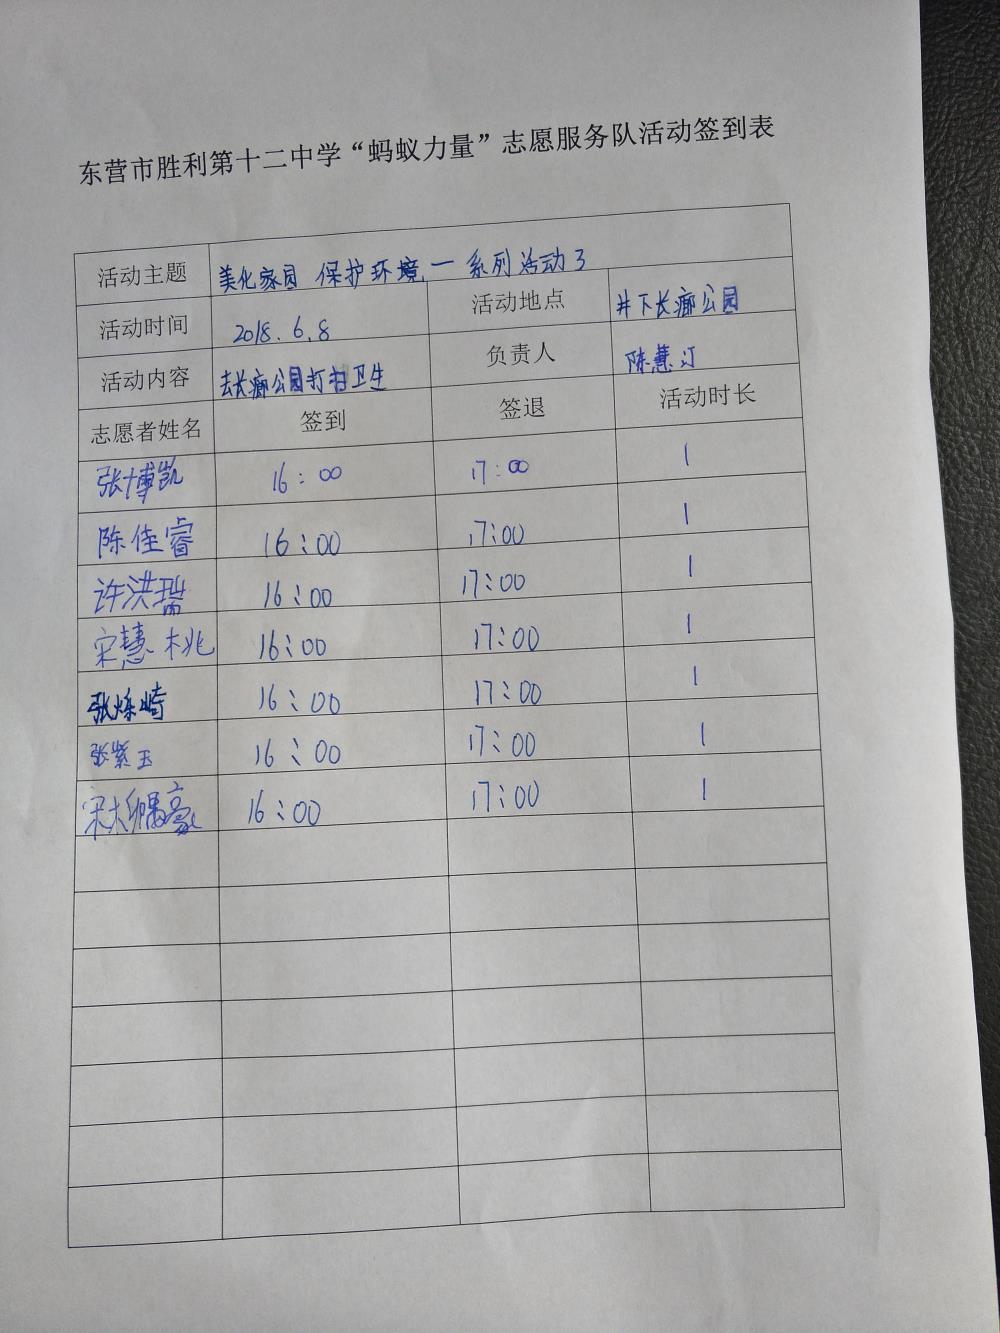 东营市胜利第十二中学“蚂蚁力量”志愿服务队活动签到表
活动主题 美化家园 保护环境 — 系列活动3
活动时间 2018.6.8 活动地点 井下长廊公园
活动内容 去长廊公园打扫卫生 负责人 陈慧汀
志愿者姓名 签到 签退 活动时长
张博凯 16:00 17:00 1
陈佳睿 16:00 17:00 1
许洪瑞 16:00 17:00 1
宋慧桃 16:00 17:00 1
张烁崎 16:00 17:00 1
张紫玉 16:00 17:00 1
宋 豪 16:00 17:00 1